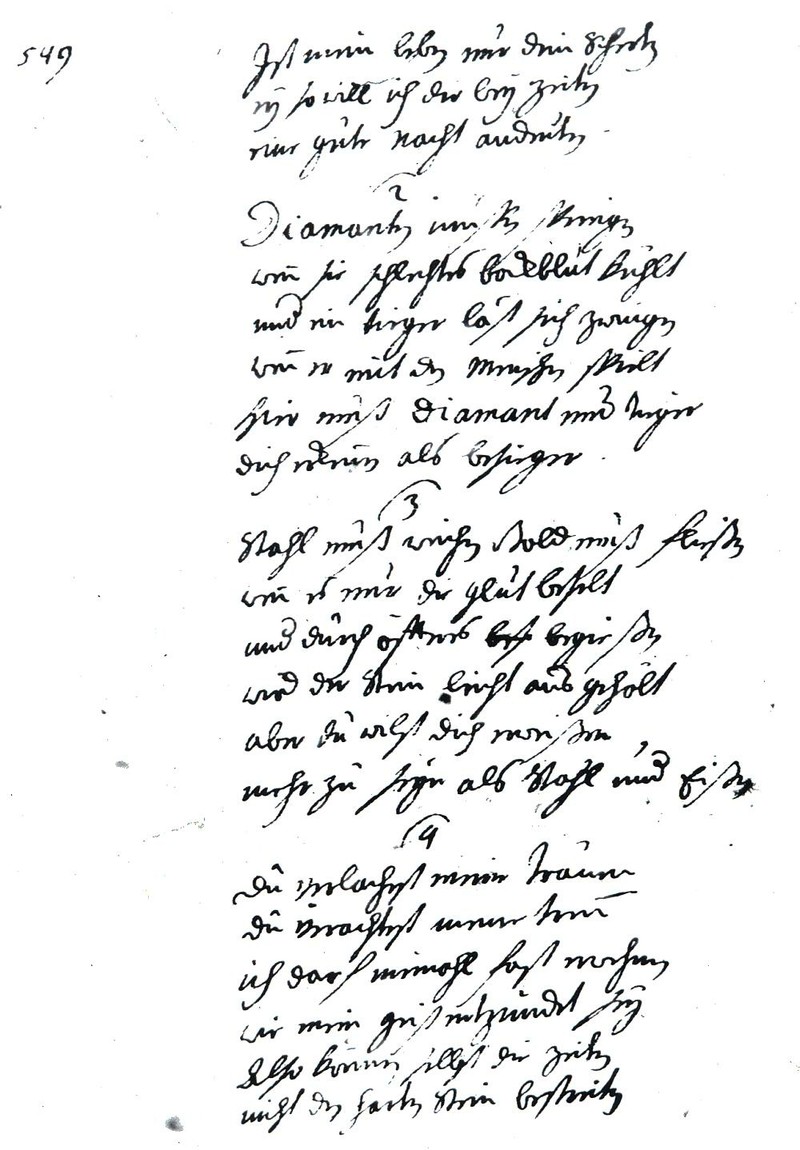 549
Ist mein leben nur dein Schertz
ey so will ich dir bey zeiten
eine gute Nacht andeuten.
2
Diamanten müssen springen
wen sie schlechtes bocksblut kühlt
und ein tieger läst sich zwingen
wen er mit den Menschen spielt
hir muß Diamant und tieger
dich als besieger.
3
Stahl muß weichen Gold muß fließen
wen es nur die glut befielt
und durch öffteres begießen
wird der Stein leicht aus gehölt
aber du wilst dich
mehr zu seyn als Stahl und Eißen
4
du verlachest meine tränen
du verachtest meine treu
ich darf niemahl fast
wie mein geist entzündet sey
Also können selbst die zeiten
nicht den harten Stein bestreiten